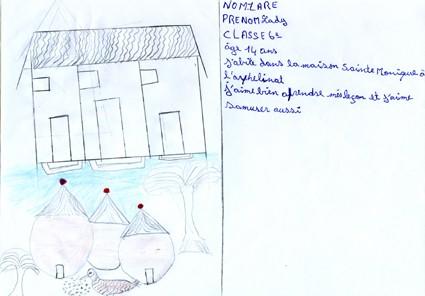 NOM LARE
PRENOM Lady
CLASSE 6e
âge 14 ans
j'abite dans la maison Sainte Monique à
l'orphelinat
j'aime bien aprendre mes leçon et j'aime
samuser aussi